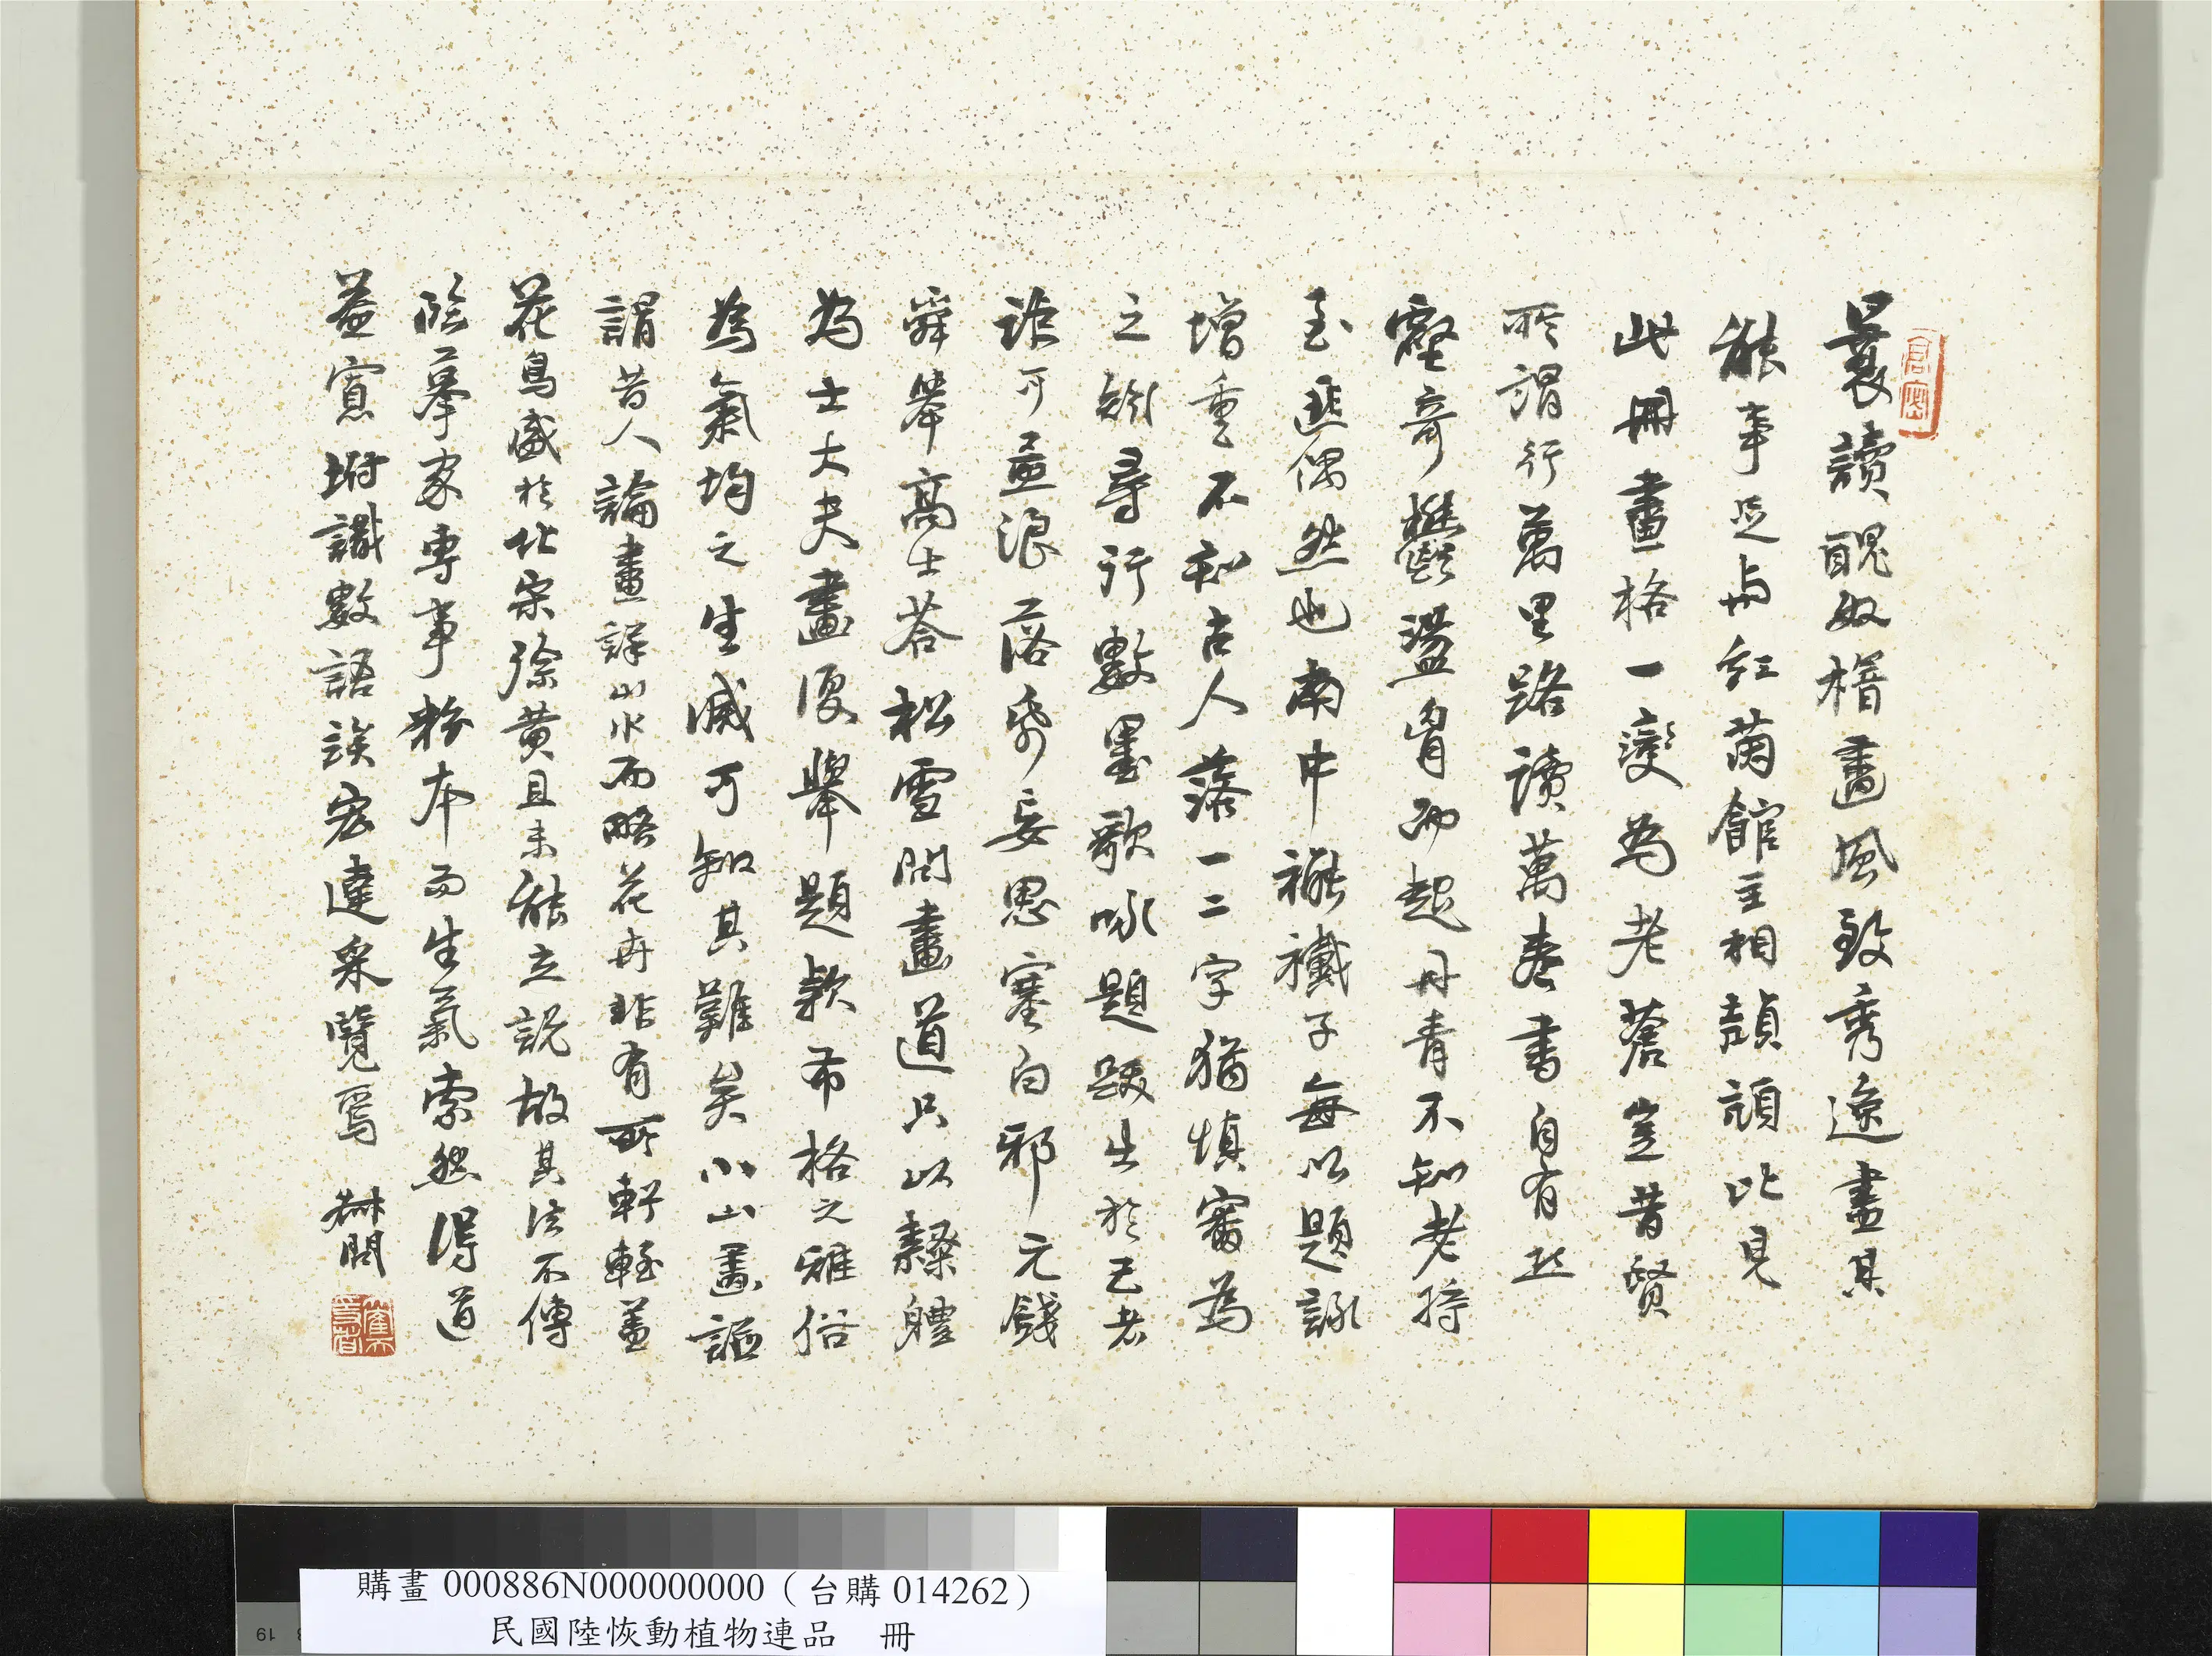 曩讀醜奴楷畫風致秀逸盡其
能事足与紅蘭館主相頡頏比見
此冊畫格一變為老蒼豈昔賢
所謂行萬里路讀萬卷書自有
奇盪胷而起丹青不知老將
至匪偶然也南中褦襶子每以題詠
增重不知古人落一二字猶慎審為
之尋行數墨歌咏題跋出於己者
詎可孟浪落帋妄思塞白耶元錢
舜舉高士荅松雪問畫道只以隸體
為士大夫畫復舉題款布格之雅俗
為氣均之生滅可知其難矣小山畫
謂昔人論畫詳山水而略花卉非有所軒輊蓋
花鳥盛於北宋徐黃且未能立說故其法不傳
臨摹家專事粉本而生氣索然得道
蓋寡坿識數語諉宏達采覽焉
購畫 000886N000000000（台購 014262）
民國陸恢動植物連品 冊
19